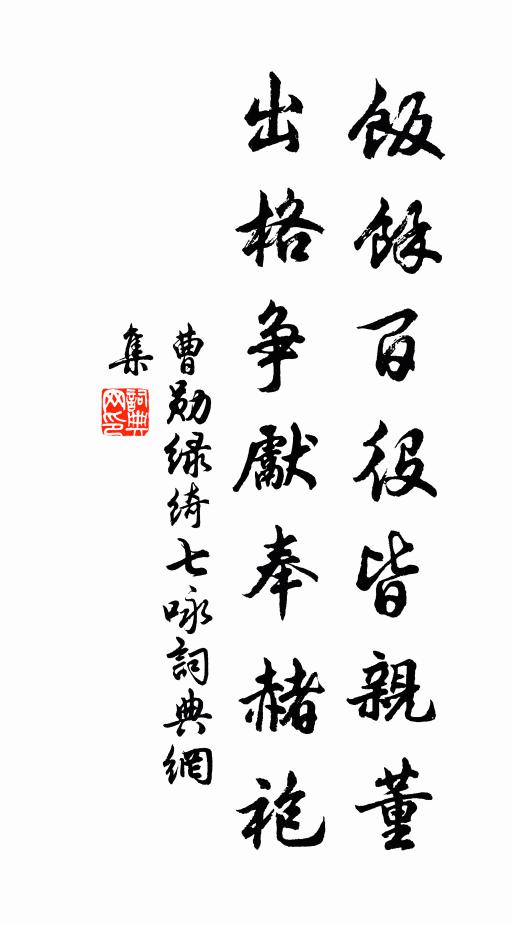 飯餘百役皆親董
出格争獻奉赭袍
曹勛绿綺七咏詞典網
集
詞典
网印